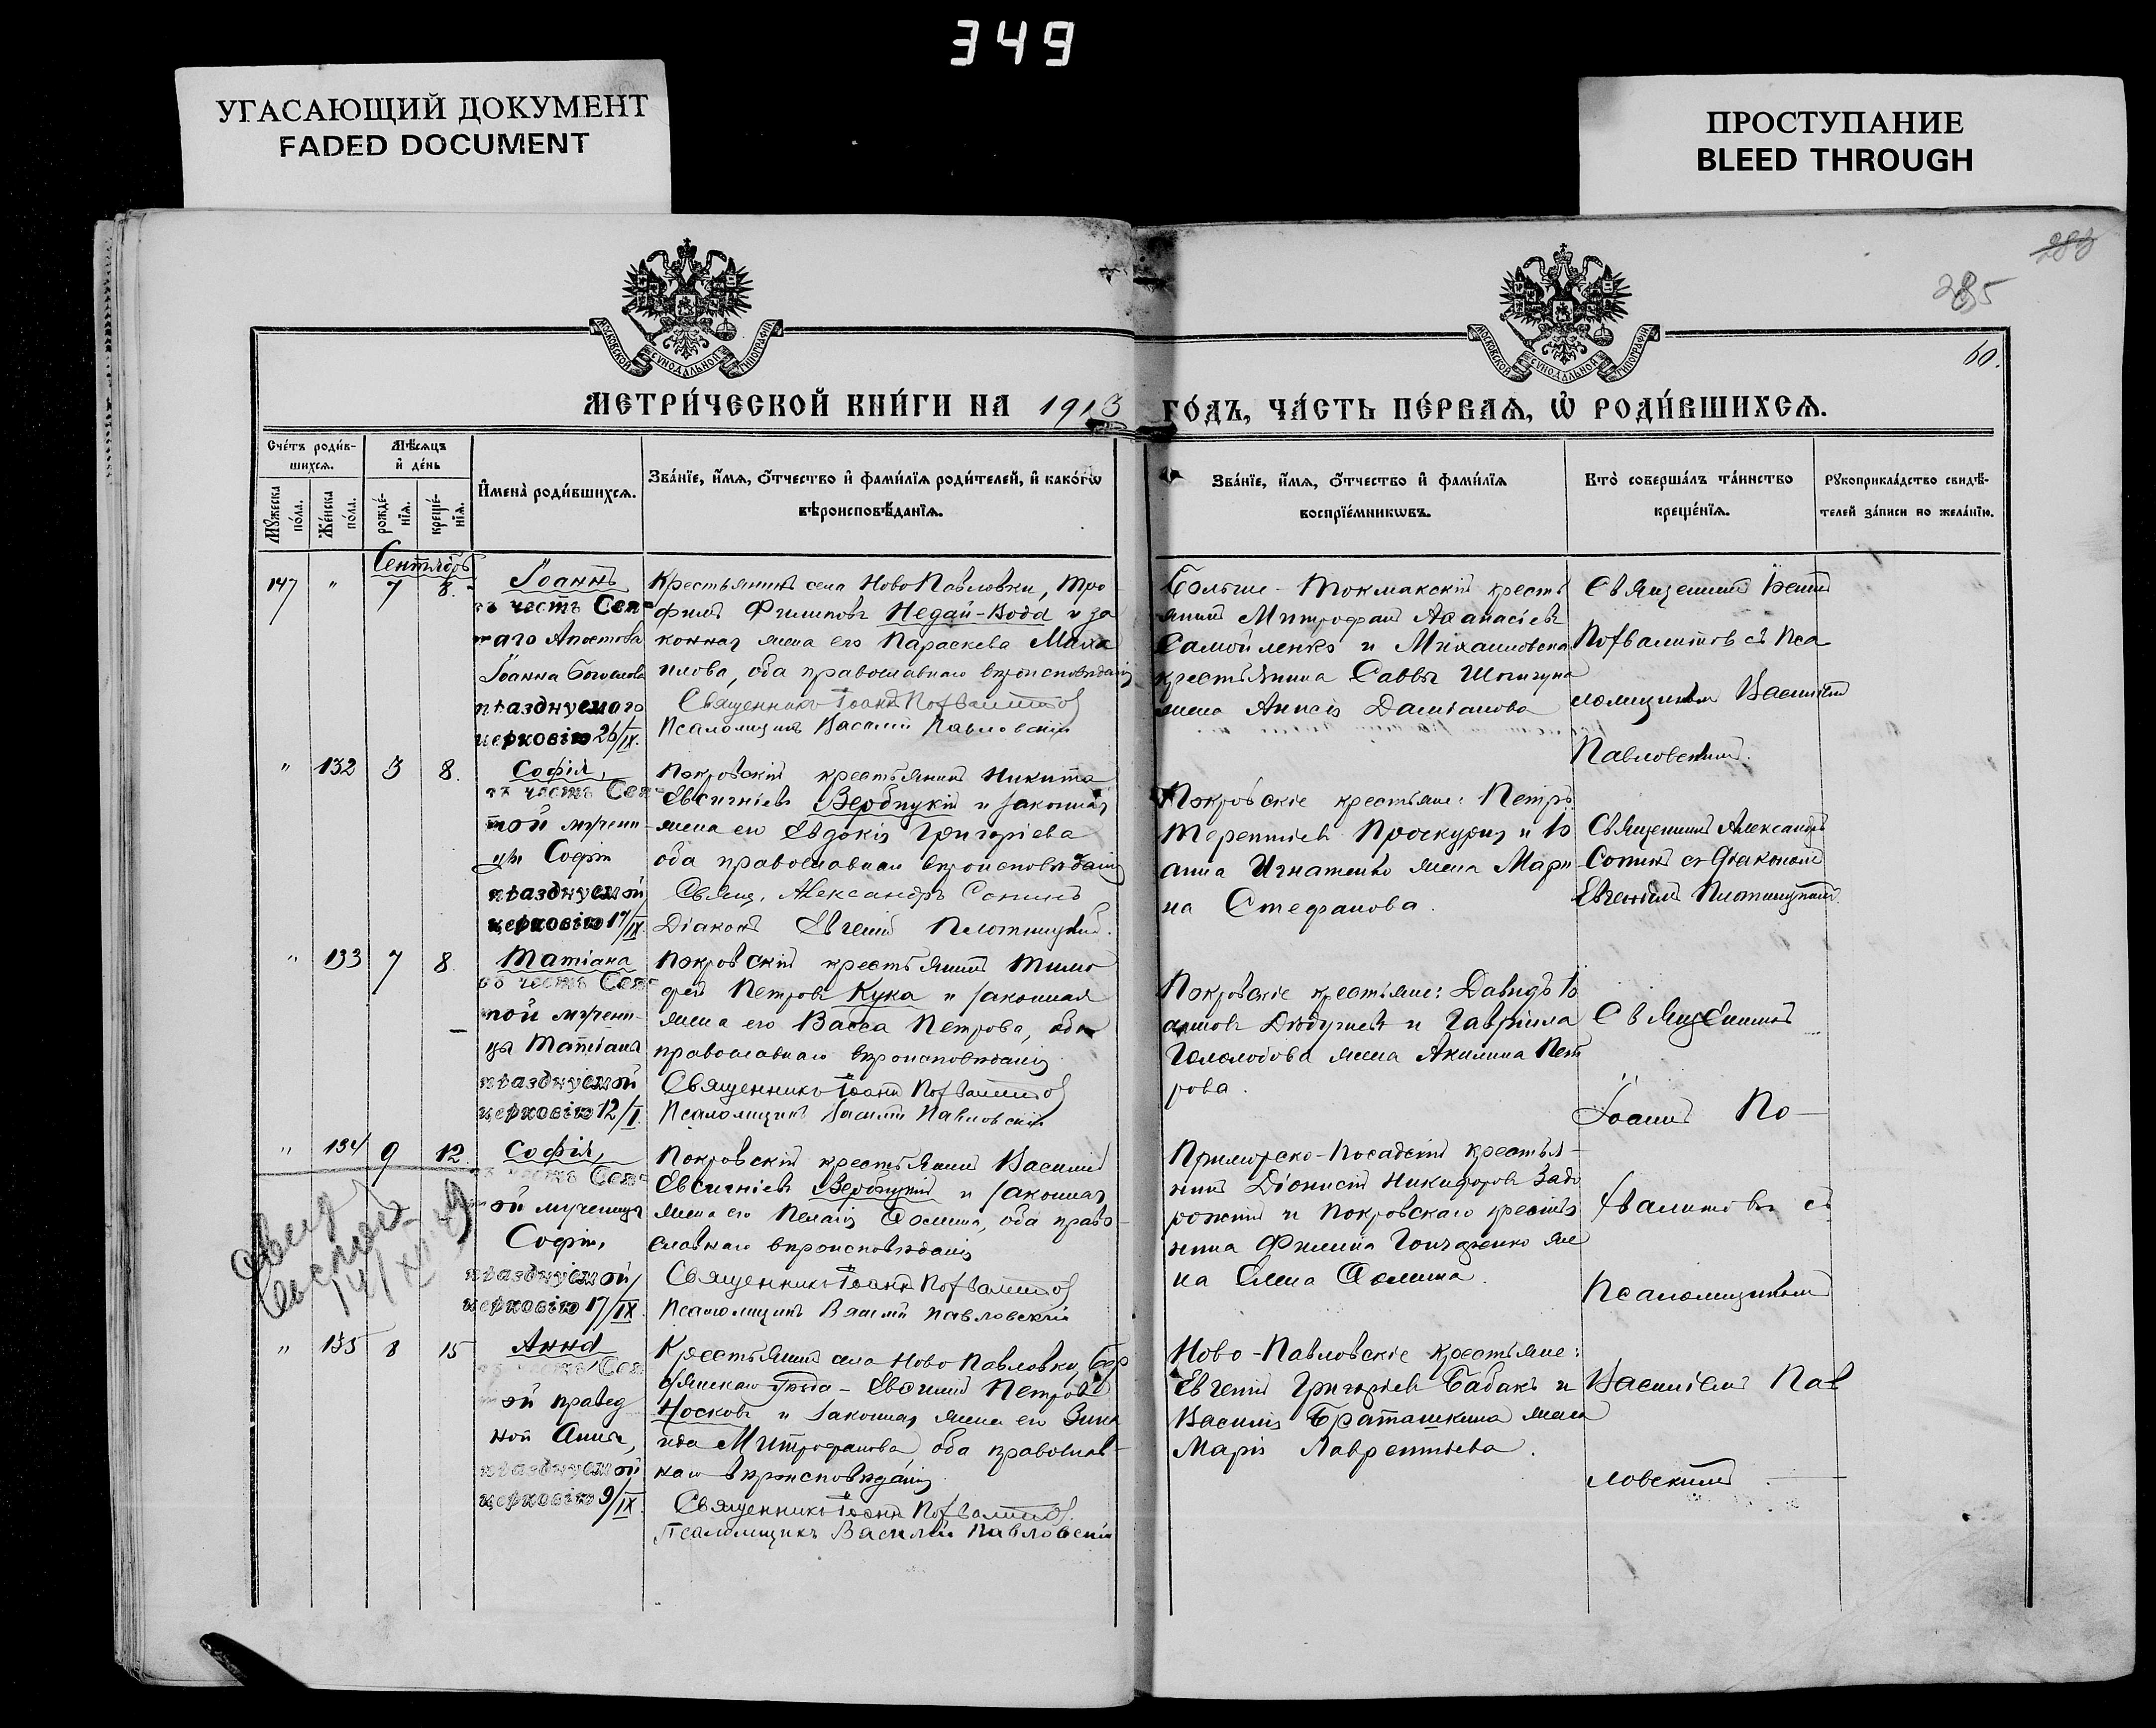 349
УГАСАЮЩИЙ ДОКУМЕНТ
FADED DOCUMENT
ПРОСТУПАНИЕ
BLEED THROUGH
283
285
60.
МОСКОВСКОЙ СѴНОДАЛЬНОЙ ТИПОГРАФІИ
МОСКОВСКОЙ СѴНОДАЛЬНОЙ ТИПОГРАФІИ
МЕТРИ́ЧЕСКОЙ КНИ́ГИ НА 1913 ГО́ДЪ, ЧА́СТЬ ПЕ́РВАѦ, Ѡ҆ РОДИ́ВШИХСѦ.
Сче́тъ роди́в-
шихсѧ.
Мѣ́сѧцъ
и҆ де́нь
Мꙋ́жеска
по́ла.
Же́нска
по́ла.
рожде́-
нїѧ.
креще́-
нїѧ.
И҆мена̀ роди́вшихсѧ.
Зва́нїе, и҆́мѧ, ѻ҆́тчество и҆ фами́лїѧ роди́телей, и҆ како́гѡ
вѣроисповѣ́данїѧ.
Зва́нїе, и҆́мѧ, ѻ҆́тчество и҆ фами́лїѧ
воспрїе́мникѡвъ.
Кто̀ соверша́лъ та́инство
креще́нїѧ.
Рꙋкоприкла́дство свидѣ́-
телей за́писи по жела́нїю.
Сентябрь
147 " 7 8.
Іоаннъ
въ честь Свя-
таго Апостола
Іоанна Богослова
празднуемого
церковію 26/IX.
Крестьянинъ села Ново Павловки, Тро
фимъ Филиповъ Недай-Вода и за
конная жена его Параскева Миха
илова, оба православнаго вѣроисповѣданія
Священникъ Іоаннъ Похвалитовъ
Псаломщикъ Василій Павловскій
Больше-Токмакскій кресть
янинъ Митрофанъ Аѳанасіевъ
Самойленко и Михайловскаго
крестьянина Саввы
жена Анисія Даміанова
Священникъ Іоаннъ
Похвалитовъ съ Пса
ломщикомъ Василіемъ
Павловскимъ.
" 132 3 8.
Софія,
въ честь Свя-
той мучени-
цы Софіи
празднуемой
церковію 17/IX.
Покровскій крестьянинъ Никита
Евсигніевъ Вербицкій и законная
жена его Евдокія Григоріева
оба православнаго вѣроисповѣданія
Свящ. Александръ Сопинъ
Діаконъ Евгеній Плотницкій.
Покровскіе крестьяне: Петръ
Терентіевъ Проскурня и Іо
анна Игнатенко жена Мари
на Стефанова.
Священникъ Александръ
Сопинъ съ Діакономъ
Евгеніемъ Плотницкимъ.
" 133 7 8.
Татіана
въ честь Свя-
той мучени-
цы Татіаны
празднуемой
церковію 12/I.
Покровскій крестьянинъ Тимо
фей Петровъ Кука и законная
жена его Васса Петрова, оба
православнаго вѣроисповѣданія
Священникъ Іоаннъ Похвалитовъ
Псаломщикъ Василій Павловскій
Покровскіе крестьяне: Давидъ Іо
анновъ и Гавріила
Гололобова жена Акилина Пет
рова.
Священникъ
Іоаннъ По-
хвалитовъ съ
Псаломщикомъ
Василіемъ Пав
ловскимъ.
" 134 9 12.
Софія,
въ честь Свя-
той мученицы
Софіи,
празднуемой
церковію 17/IX.
Покровскій крестьянинъ Василій
Евсигніевъ Вербицкій и законная
жена его Пелагія Ѳомина, оба право-
славнаго вѣроисповѣданія
Священникъ Іоаннъ Похвалитовъ
Псаломщикъ Василій Павловскій
Приморско-Посадскій крестья-
нинъ Діонисій Никифоровъ Задо
рожній и Покровскаго крестья
нина Филипа Гончаренко же
на Елена Ѳомина.
" 135 8 15
Анна
въ честь Свя-
той правед
ной Анны,
празднуемой
церковію 9/IX.
Крестьянинъ села Ново Павловки, Бер
дянскаго уѣзда - Евфимій Петровъ
Носковъ и законная жена его Зина
ида Митрофанова оба православ-
наго вѣроисповѣданія
Священникъ Іоаннъ Похвалитовъ.
Псаломщикъ Василій Павловскій
Ново-Павловскіе крестьяне:
Евгеній Григоріевъ Бабакъ и
Василія Браташкина жена
Марія Лаврентіева.